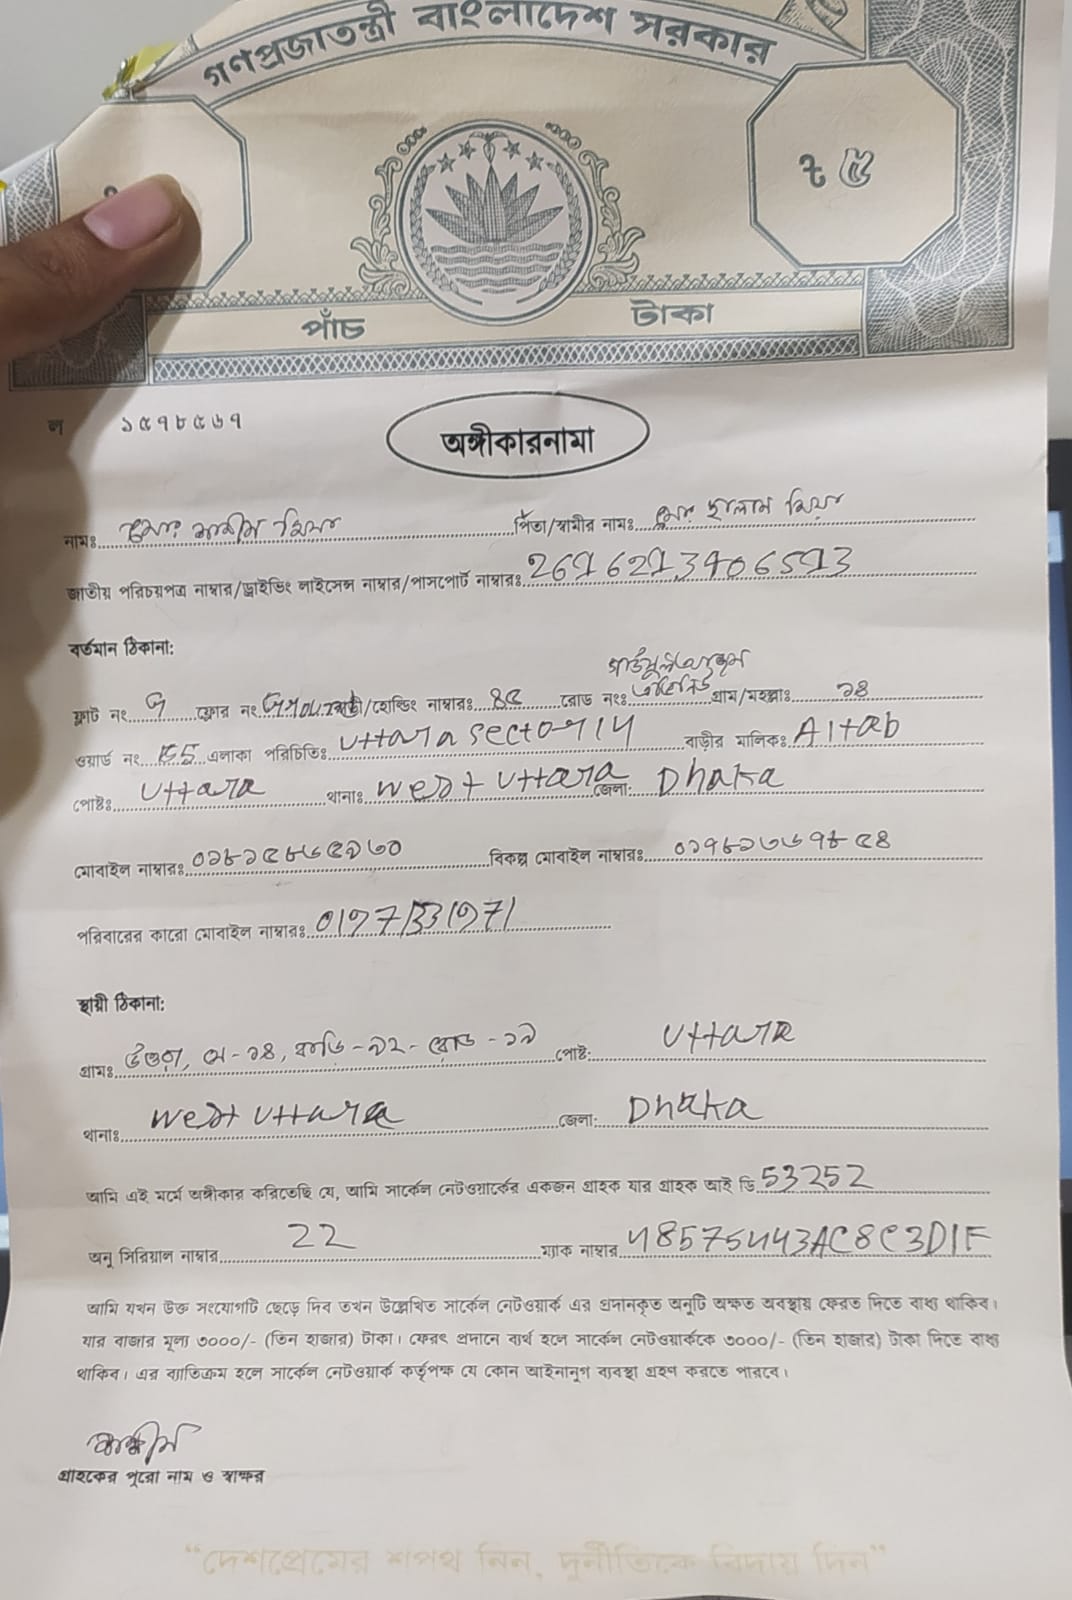 গণপ্রজাতন্ত্রী বাংলাদেশ সরকার
ট ৫
পাঁচ টাকা
ল ১৫৭৮৫৬৭
অঙ্গীকারনামা
নামঃ মোঃ শামীম মিয়া পিতা/স্বামীর নামঃ মোঃ মিয়া
জাতীয় পরিচয়পত্র নাম্বার/ড্রাইভিং লাইসেন্স নাম্বার/পাসপোর্ট নাম্বারঃ
বর্তমান ঠিকানা:
ফ্লাট নং ফ্লোর নং /হোল্ডিং নাম্বারঃ ৪৫ রোড নংঃ গ্রাম/মহল্লাঃ ১৪
ওয়ার্ড নং এলাকা পরিচিতিঃ Uttara sector 14 বাড়ীর মালিকঃ Altab
পোষ্টঃ Uttara থানাঃ West Uttara জেলা: Dhaka
মোবাইল নাম্বারঃ বিকল্প মোবাইল নাম্বারঃ
পরিবারের কারো মোবাইল নাম্বারঃ
স্থায়ী ঠিকানা:
গ্রামঃ উত্তরা, সে-১৪, বাড়ি-৯২-রোড-১৯ পোষ্ট: Uttara
থানাঃ West Uttara জেলা: Dhaka
আমি এই মর্মে অঙ্গীকার করিতেছি যে, আমি সার্কেল নেটওয়ার্কের একজন গ্রাহক যার গ্রাহক আই ডি 53252
অনু সিরিয়াল নাম্বার 22 ম্যাক নাম্বার 48575443AC8C3D1F
আমি যখন উক্ত সংযোগটি ছেড়ে দিব তখন উল্লেখিত সার্কেল নেটওয়ার্ক এর প্রদানকৃত অনুটি অক্ষত অবস্থায় ফেরত দিতে বাধ্য থাকিব।
যার বাজার মূল্য ৩০০০/- (তিন হাজার) টাকা। ফেরৎ প্রদানে ব্যর্থ হলে সার্কেল নেটওয়ার্ককে ৩০০০/- (তিন হাজার) টাকা দিতে বাধ্য
থাকিব। এর ব্যতিক্রম হলে সার্কেল নেটওয়ার্ক কর্তৃপক্ষ যে কোন আইনানুগ ব্যবস্থা গ্রহণ করতে পারবে।
শামীম
গ্রাহকের পুরো নাম ও স্বাক্ষর
“দেশপ্রেমের শপথ নিন, দুর্নীতিকে বিদায় দিন”